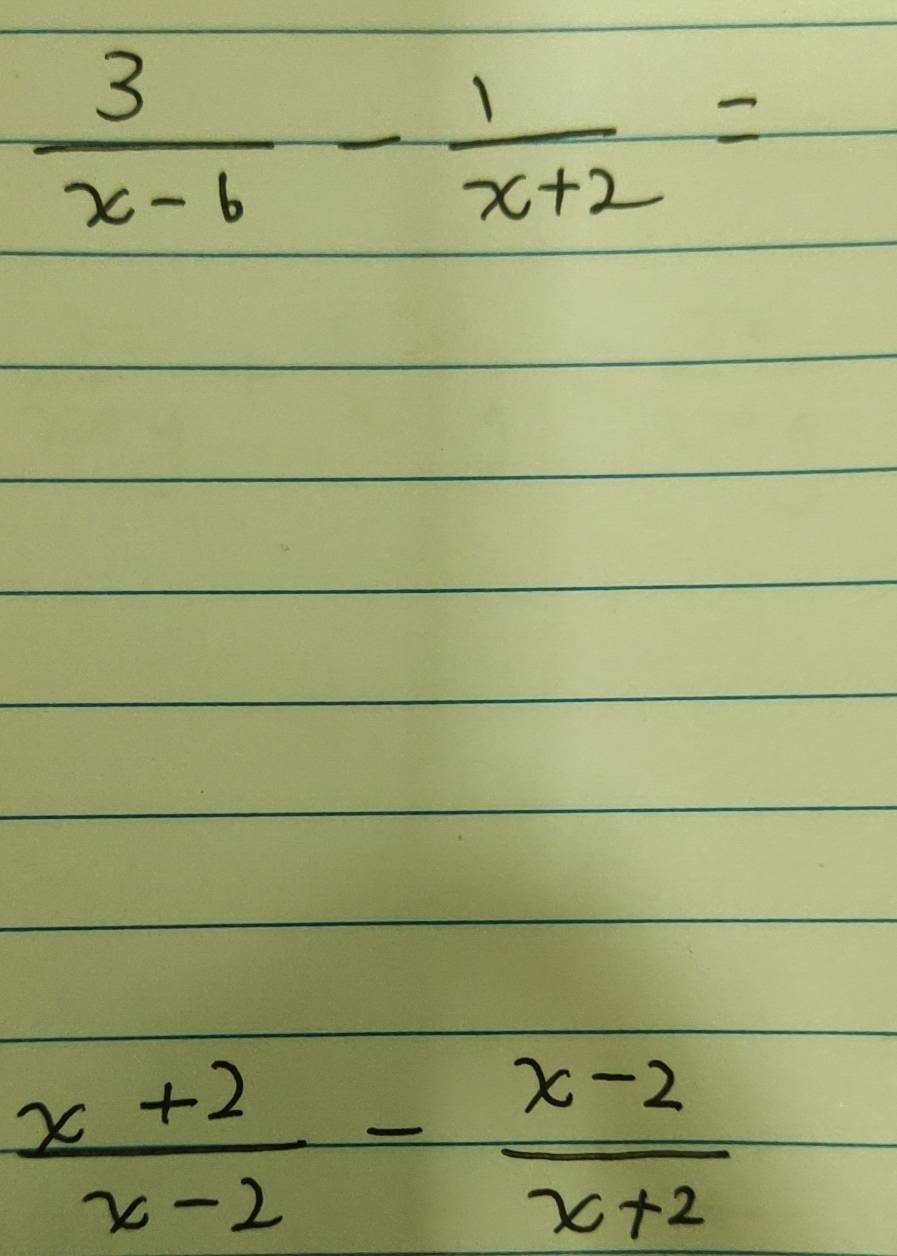 3/(x-6) - 1/(x+2) =
(x+2)/(x-2) - (x-2)/(x+2)